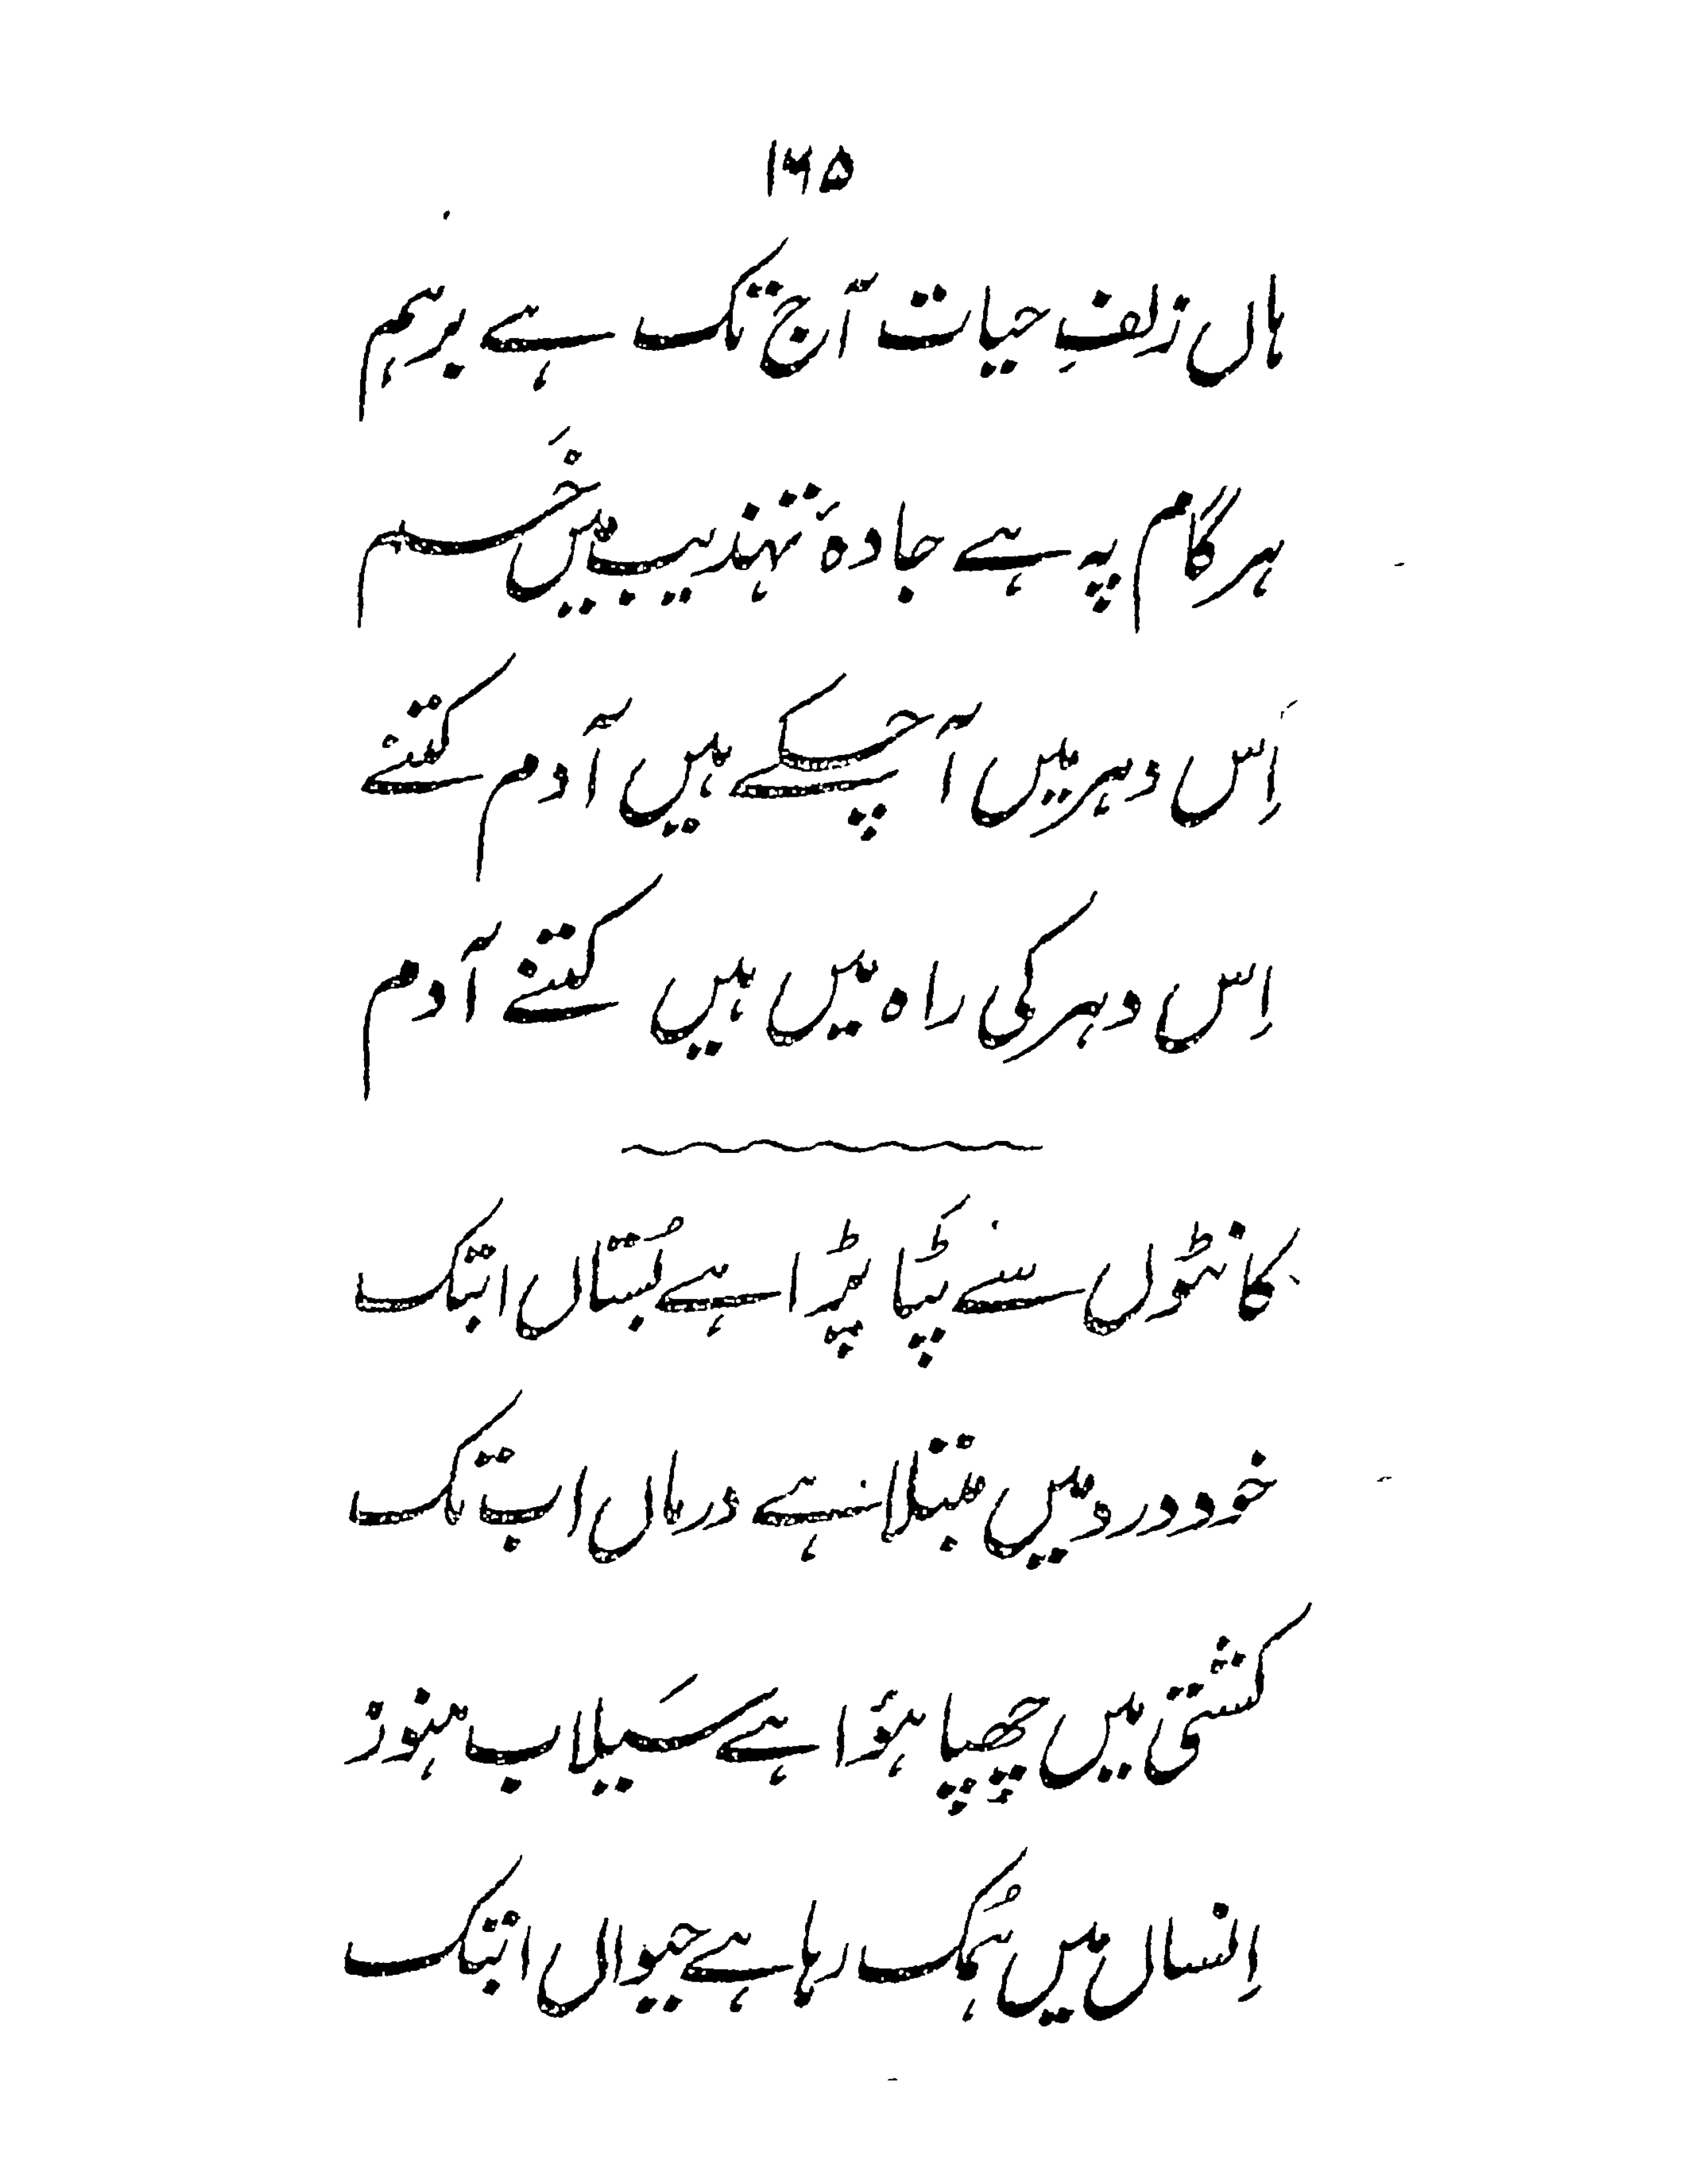 ۱۶۵
ہاں زلفِ حیات آج تک ہے برہم
ہر گام پہ ہے جادۂ تہذیب میں خَم
اِس دہر میں آ چکے ہیں آدم کتنے
اِس دہر کی راہ میں ہیں کتنے آدم
کانٹوں سے پَٹا پڑا ہے بُستاں ابتک
خود درد میں مبتلا ہے درماں اب تک
کشتی میں چھِپا ہؤا ہے سَیلاب ہنوز
اِنساں میں ہُمک رہا ہے حیواں ابتک